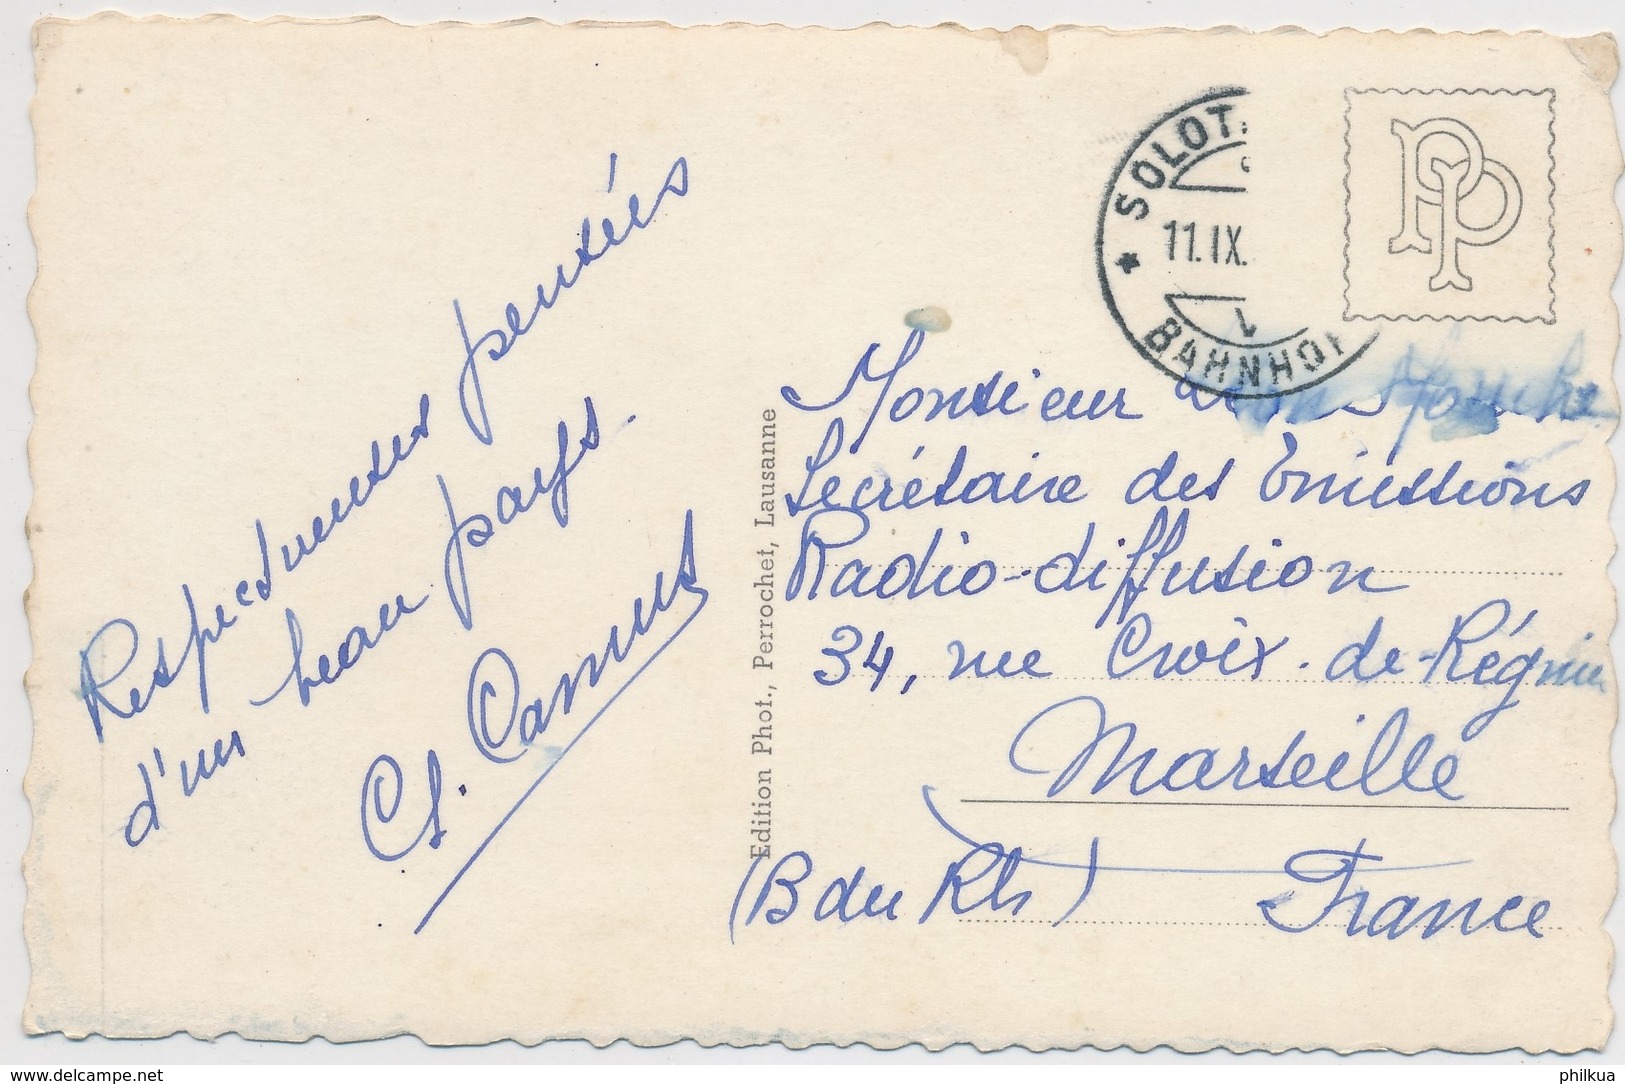 Respectueuses pensées
d'un beau pays.
Ch. Camus
Edition Phot., Perrochet, Lausanne
SOLOT
11.IX.
BAHNHOF
PP
Monsieur
Secrétaire des Emissions
Radio-diffusion
34, rue Croix-de-Régnier
Marseille
(B du Rh) France
www.delcampe.net
philkua